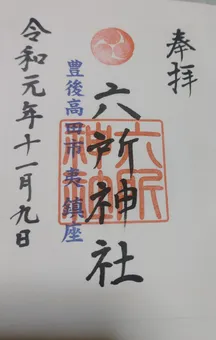 奉拝
六所神社
六所
神社
豊後高田市夷鎮座
令和元年十一月九日